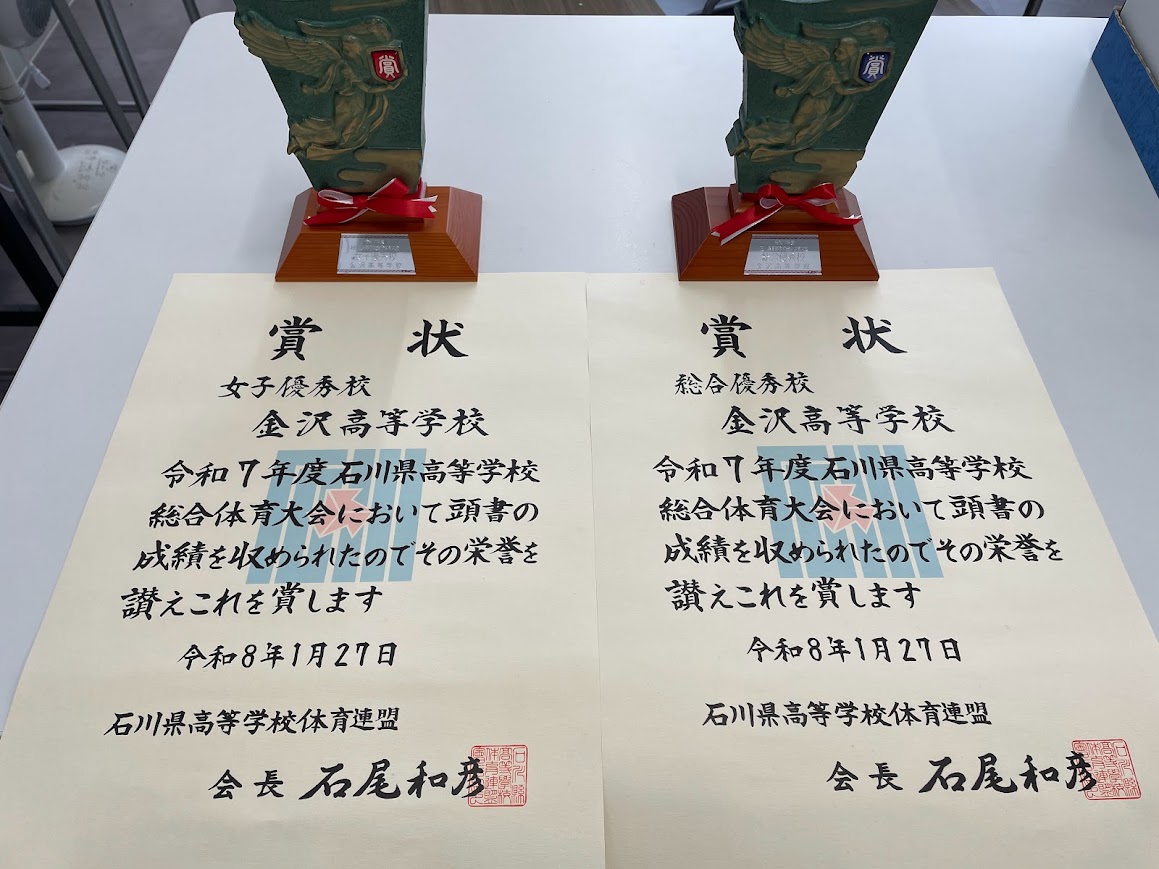 賞
賞
金沢高等学校
金沢高等学校
賞状
女子優秀校
金沢高等学校
令和7年度石川県高等学校
総合体育大会において頭書の
成績を収められたのでその栄誉を
讃えこれを賞します
令和8年1月27日
石川県高等学校体育連盟
会長 石尾和彦
賞状
総合優秀校
金沢高等学校
令和7年度石川県高等学校
総合体育大会において頭書の
成績を収められたのでその栄誉を
讃えこれを賞します
令和8年1月27日
石川県高等学校体育連盟
会長 石尾和彦